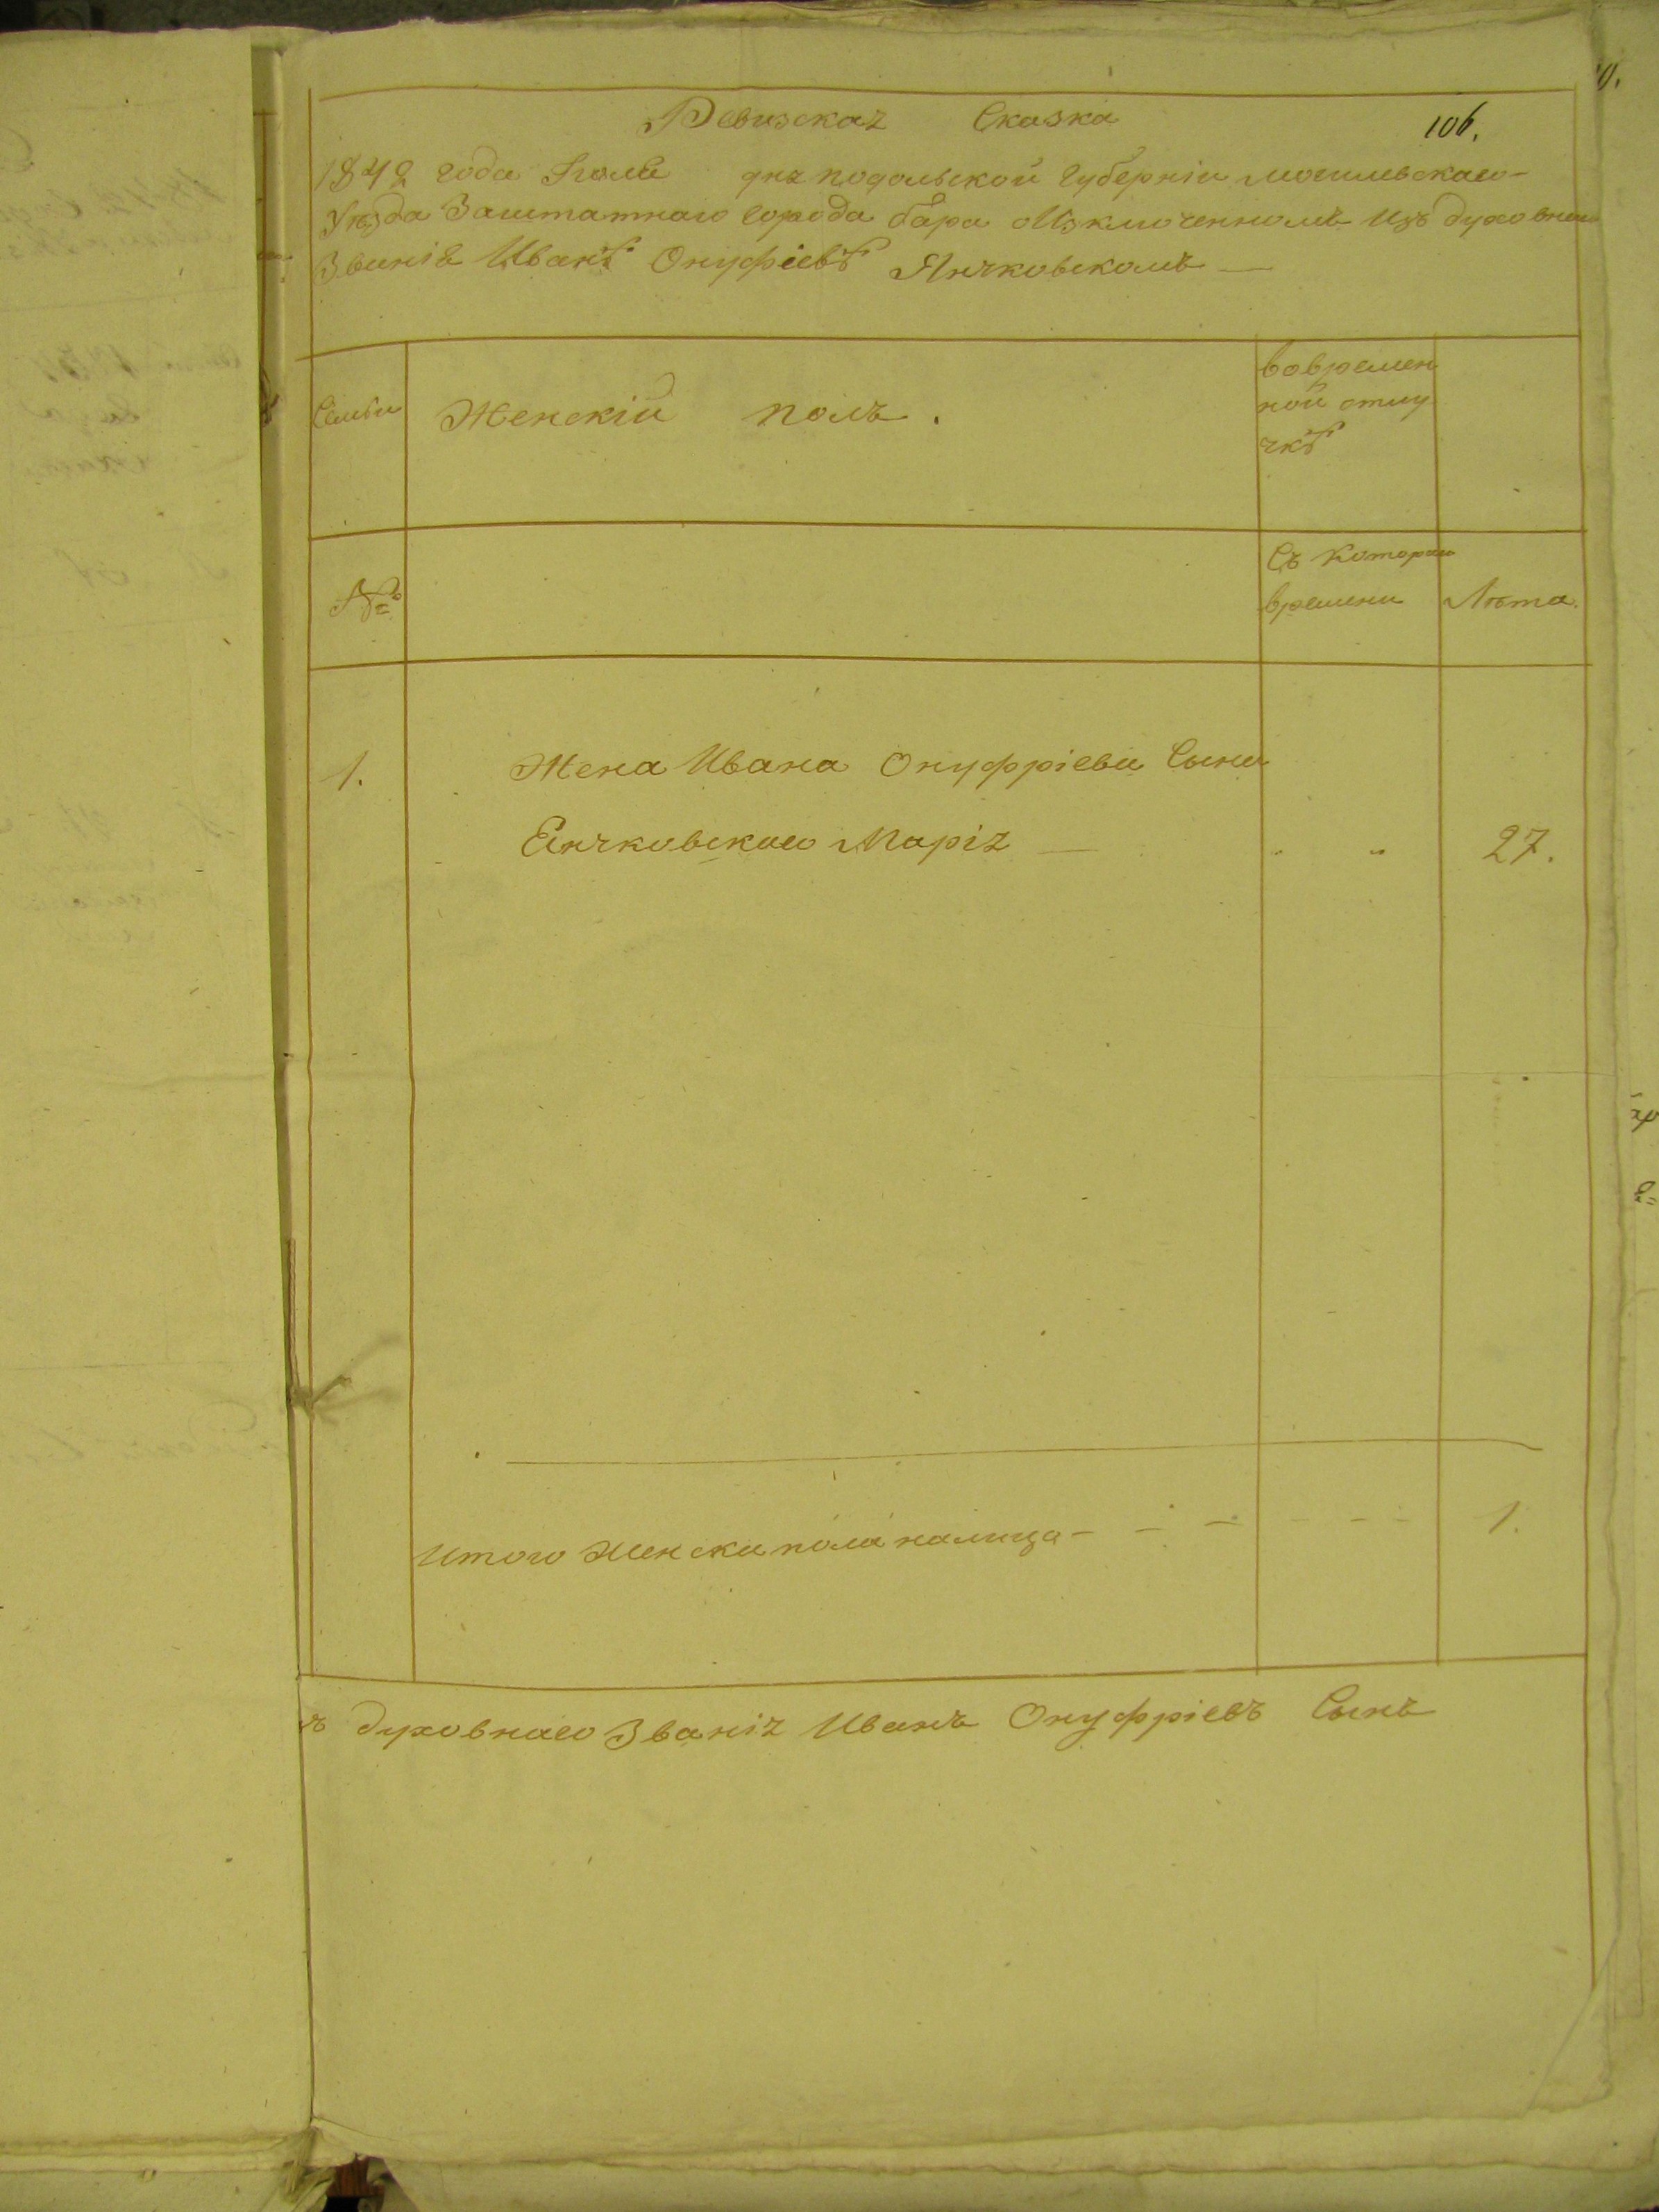 Ревизская Сказка
106.
1842 года Июля дня подольской Губерніи могилевскаго
Уѣзда Заштатнаго города бара Изключенномъ Изъ духовнаго
Званія Иванѣ Онуфріевѣ Янчковскомъ
Семьи
Женскій полъ.
вовремен
ной отлу
чкѣ
№
Съ котораго
времени
Лѣта.
1.
Жена Ивана Онуфріева Сына
Еянчковскаго Марія
27.
Итого женска пола налицо
1.
ъ духовнаго Званія Иванъ Онуфріевъ Сынъ